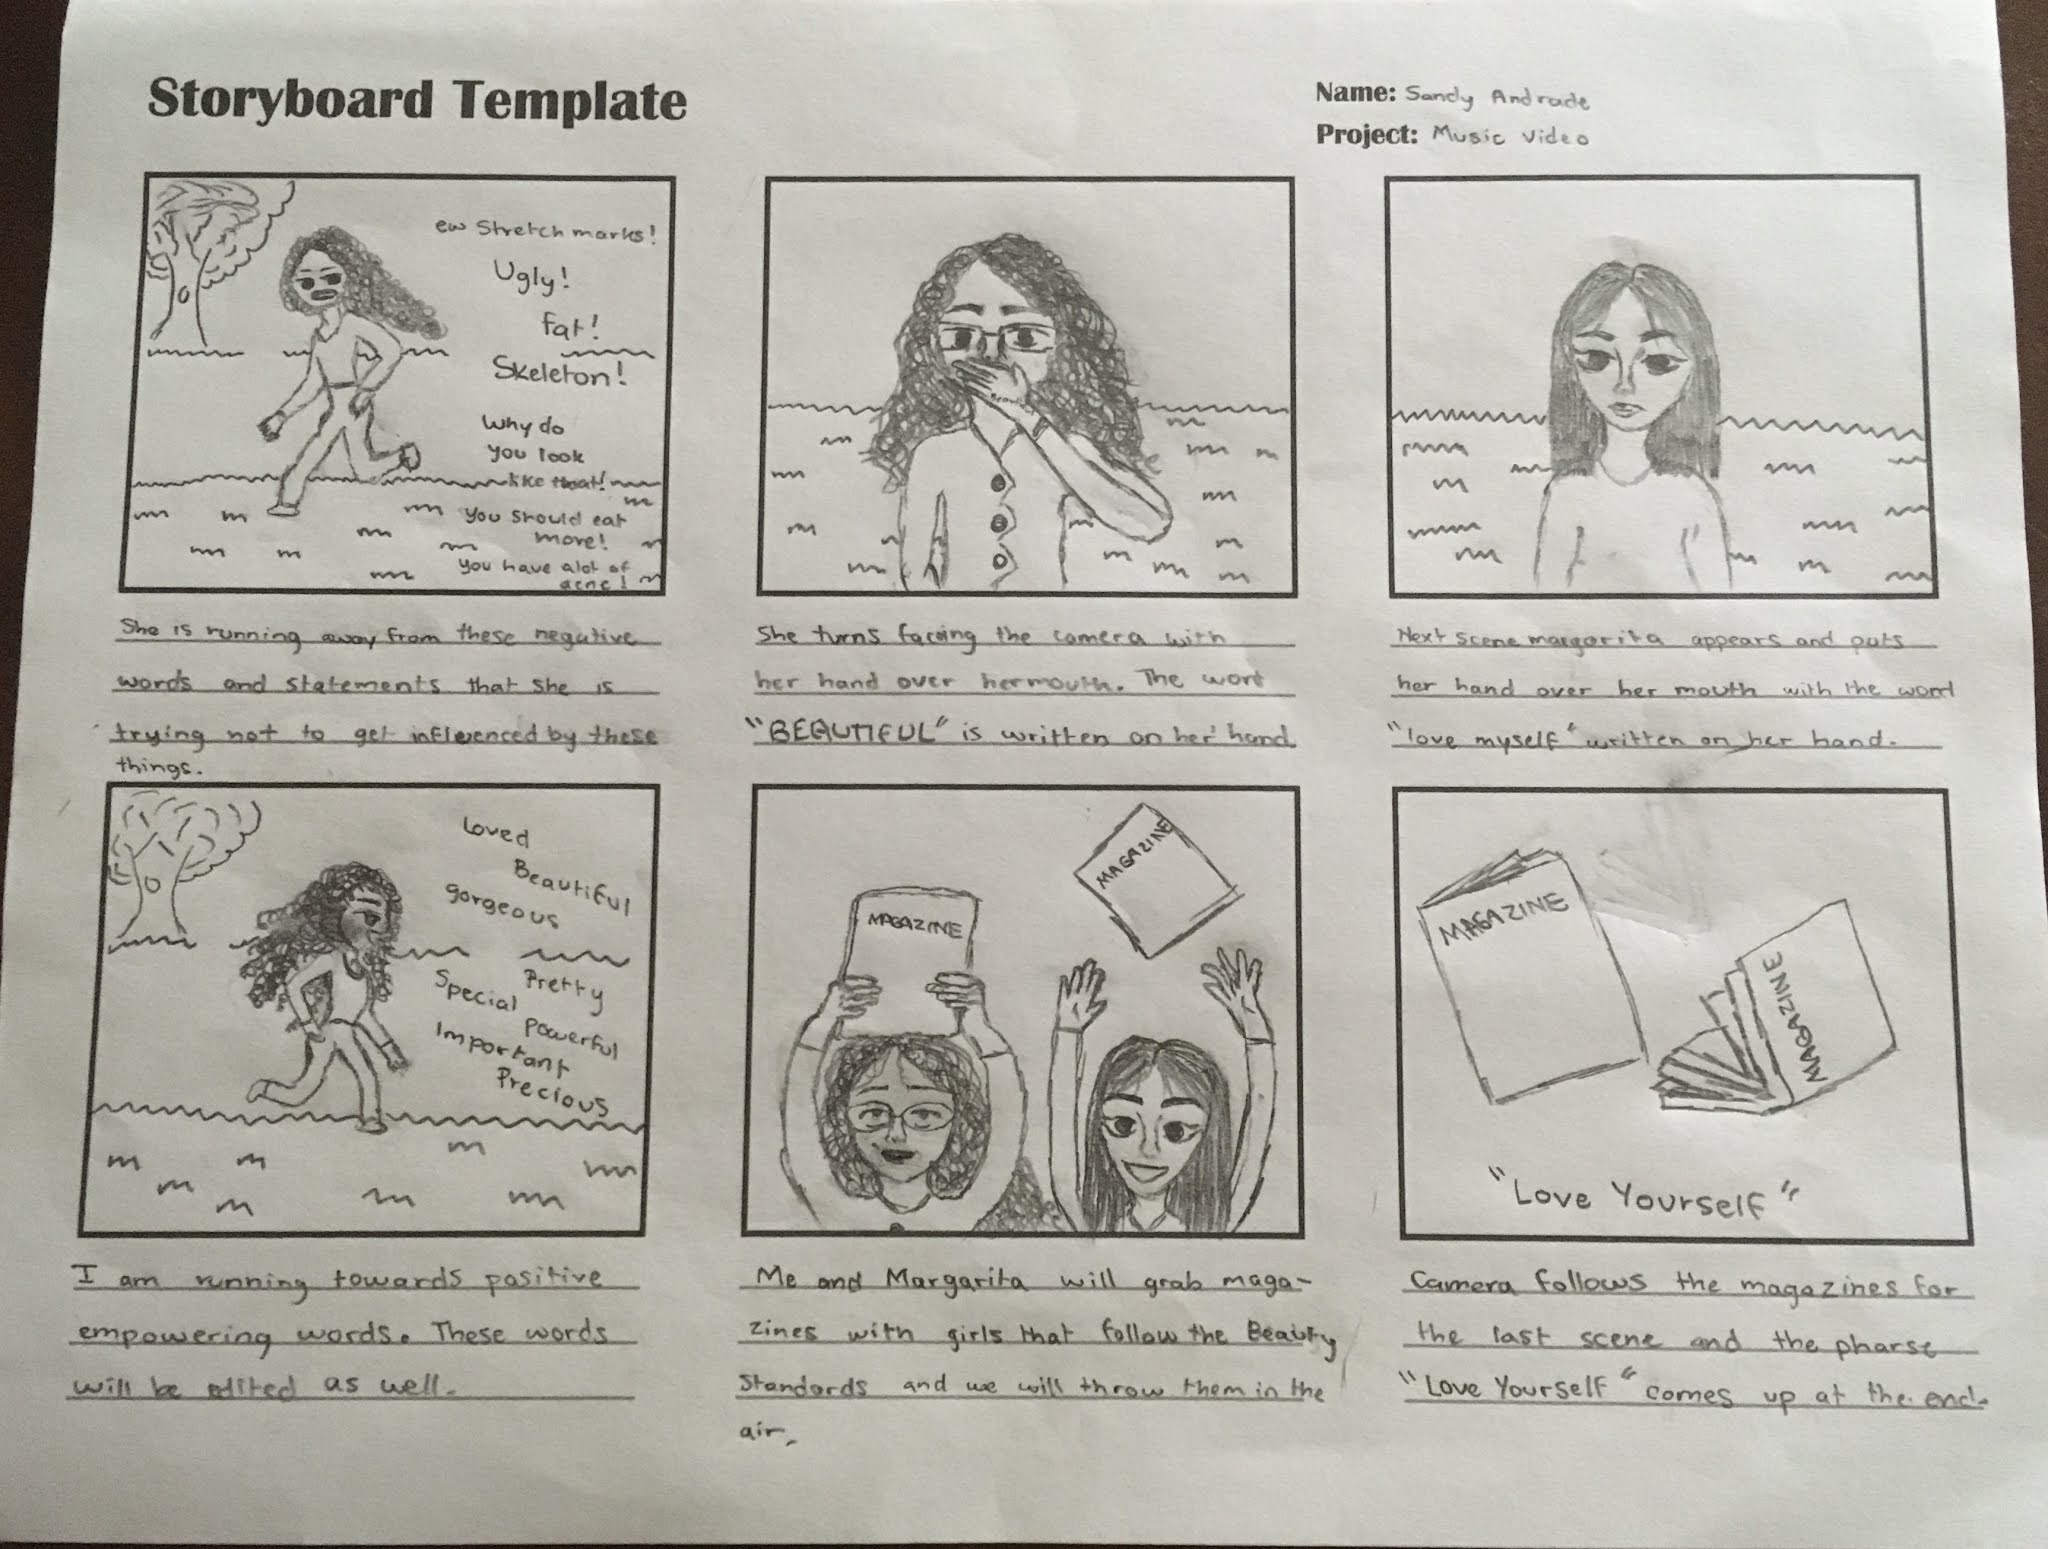 Storyboard Template
Name: Sandy Andrade
Project: Music Video
ew Stretch marks!
Ugly!
fat!
Skeleton!
Why do
you look
like that!
you should eat
more!
you have alot of
acne!
She is running away from these negative
words and statements that she is
trying not to get influenced by these
things.
She turns facing the camera with
her hand over her mouth. The word
"BEAUTIFUL" is written on her hand
Next scene margarita appears and puts
her hand over her mouth with the word
"love myself" written on her hand.
Loved
Beautiful
gorgeous
Pretty
Special
Powerful
Important
Precious
I am running towards positive
empowering words. These words
will be edited as well.
MAGAZINE
MAGAZINE
Me and Margarita will grab maga-
zines with girls that follow the Beauty
Standards and we will throw them in the
air.
MAGAZINE
MAGAZINE
"Love Yourself"
Camera follows the magazines for
the last scene and the pharse
"Love Yourself" comes up at the end.